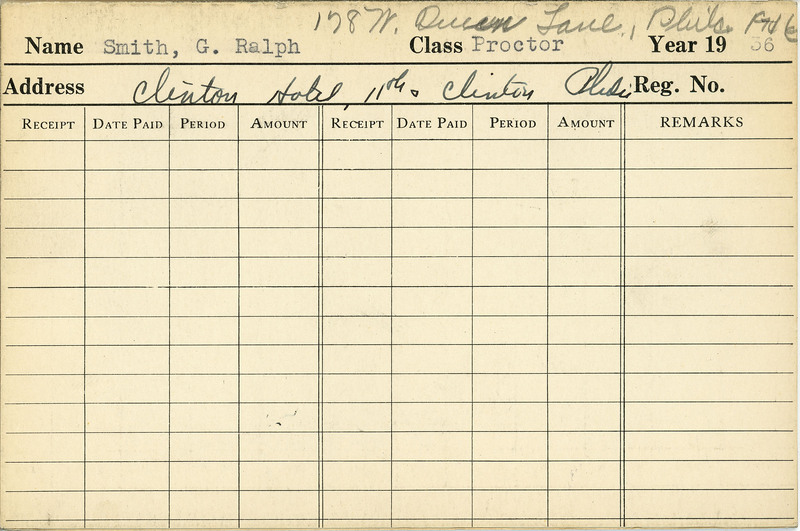 178 W. Queen Lane, Phila.
Name Smith, G. Ralph Class Proctor Year 19 36
Address Clinton Hotel, 11th & Clinton Phila Reg. No.
RECEIPT DATE PAID PERIOD AMOUNT RECEIPT DATE PAID PERIOD AMOUNT REMARKS